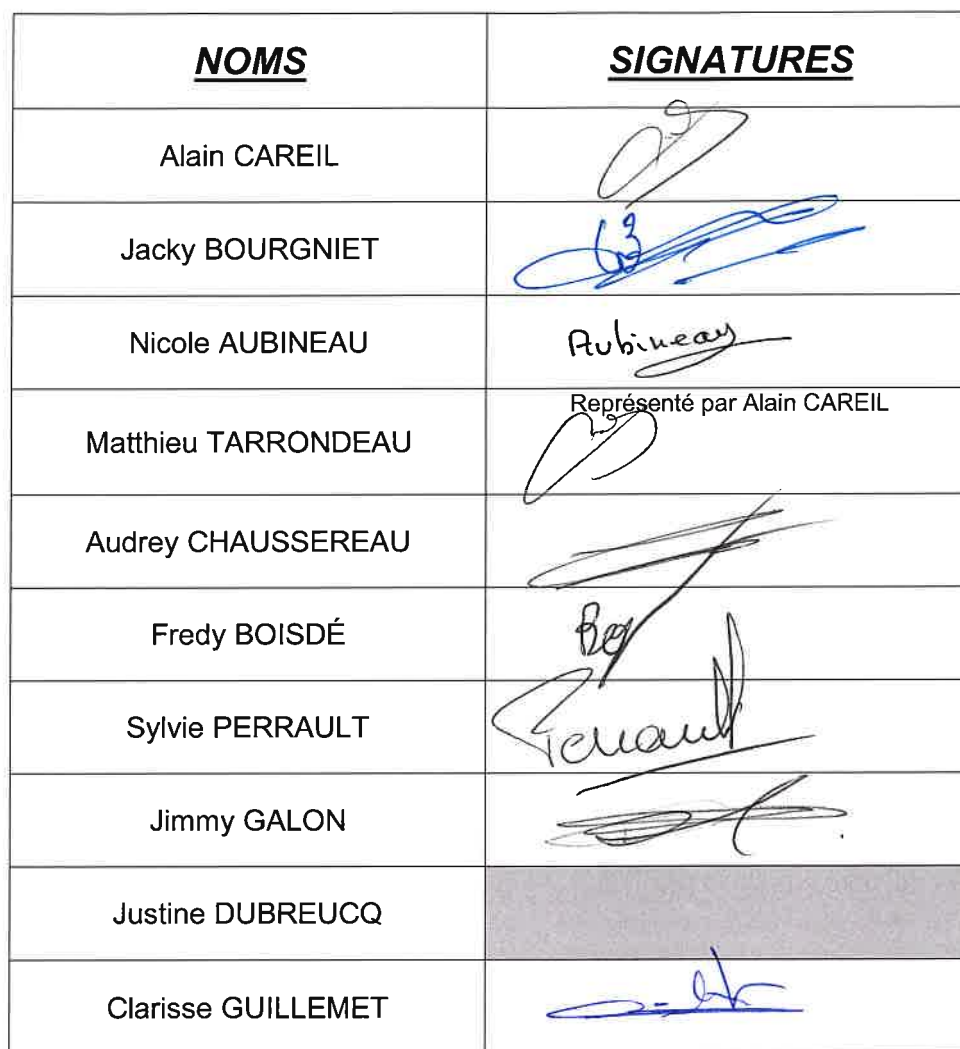 NOMS SIGNATURES
Alain CAREIL
Jacky BOURGNIET
Nicole AUBINEAU Aubineau
Représenté par Alain CAREIL
Matthieu TARRONDEAU
Audrey CHAUSSEREAU
Fredy BOISDÉ
Sylvie PERRAULT Perrault
Jimmy GALON
Justine DUBREUCQ
Clarisse GUILLEMET